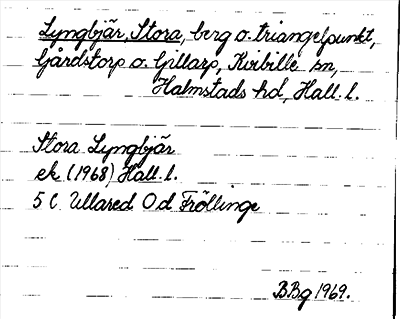 Lyngbjär, Stora, berg o. triangelpunkt,
Gårdstorp o. Gillarp, Kvibille sn,
Halmstads hd, Hall. l.
Stora Lyngbjär
ek (1968) Hall. l.
5 C Ullared 0 d Fröllinge
BBg 1969.